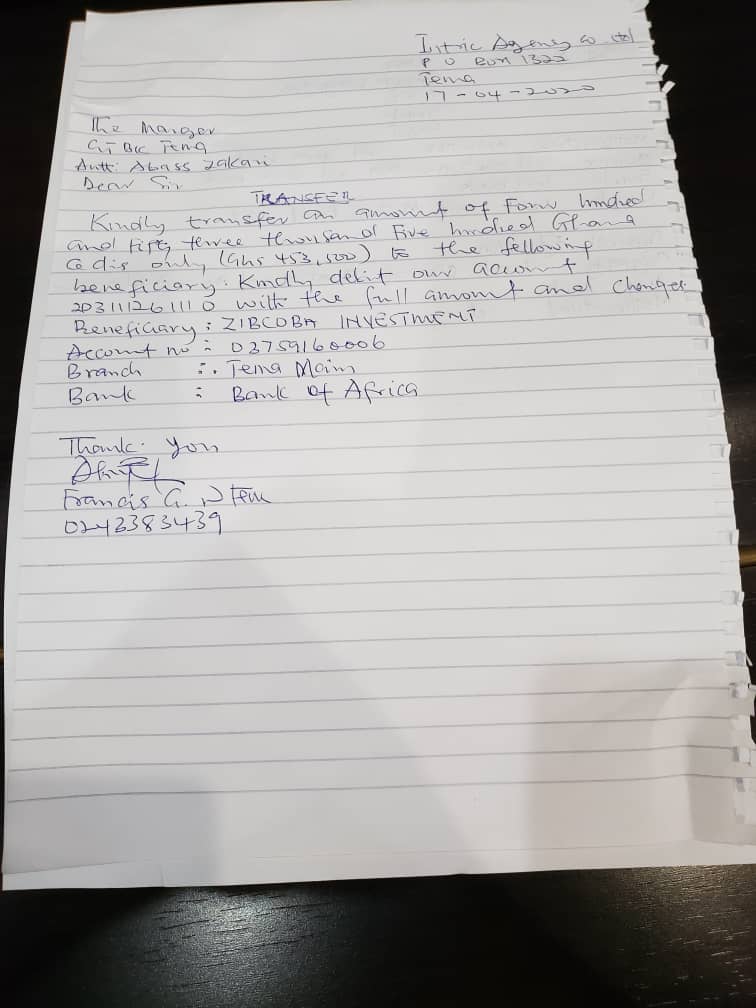 Istric Agency Co. Ltd
P O Box 1322
Tema
17-04-2020
The Manger
GT Bk Tema
Attn: Abass Zakari
Dear Sir
TRANSFER
Kindly transfer an amount of Four hundred
and fifty three thousand Five hundred Ghana
Cedis only (Ghs 453,500) to the following
beneficiary. Kindly debit our account
20311261110 with the full amount and charges.
Beneficiary : ZIBCOBA INVESTMENT
Account no : 03759160006
Branch : Tema Main
Bank : Bank of Africa
Thank you
Francis G.
0242383439